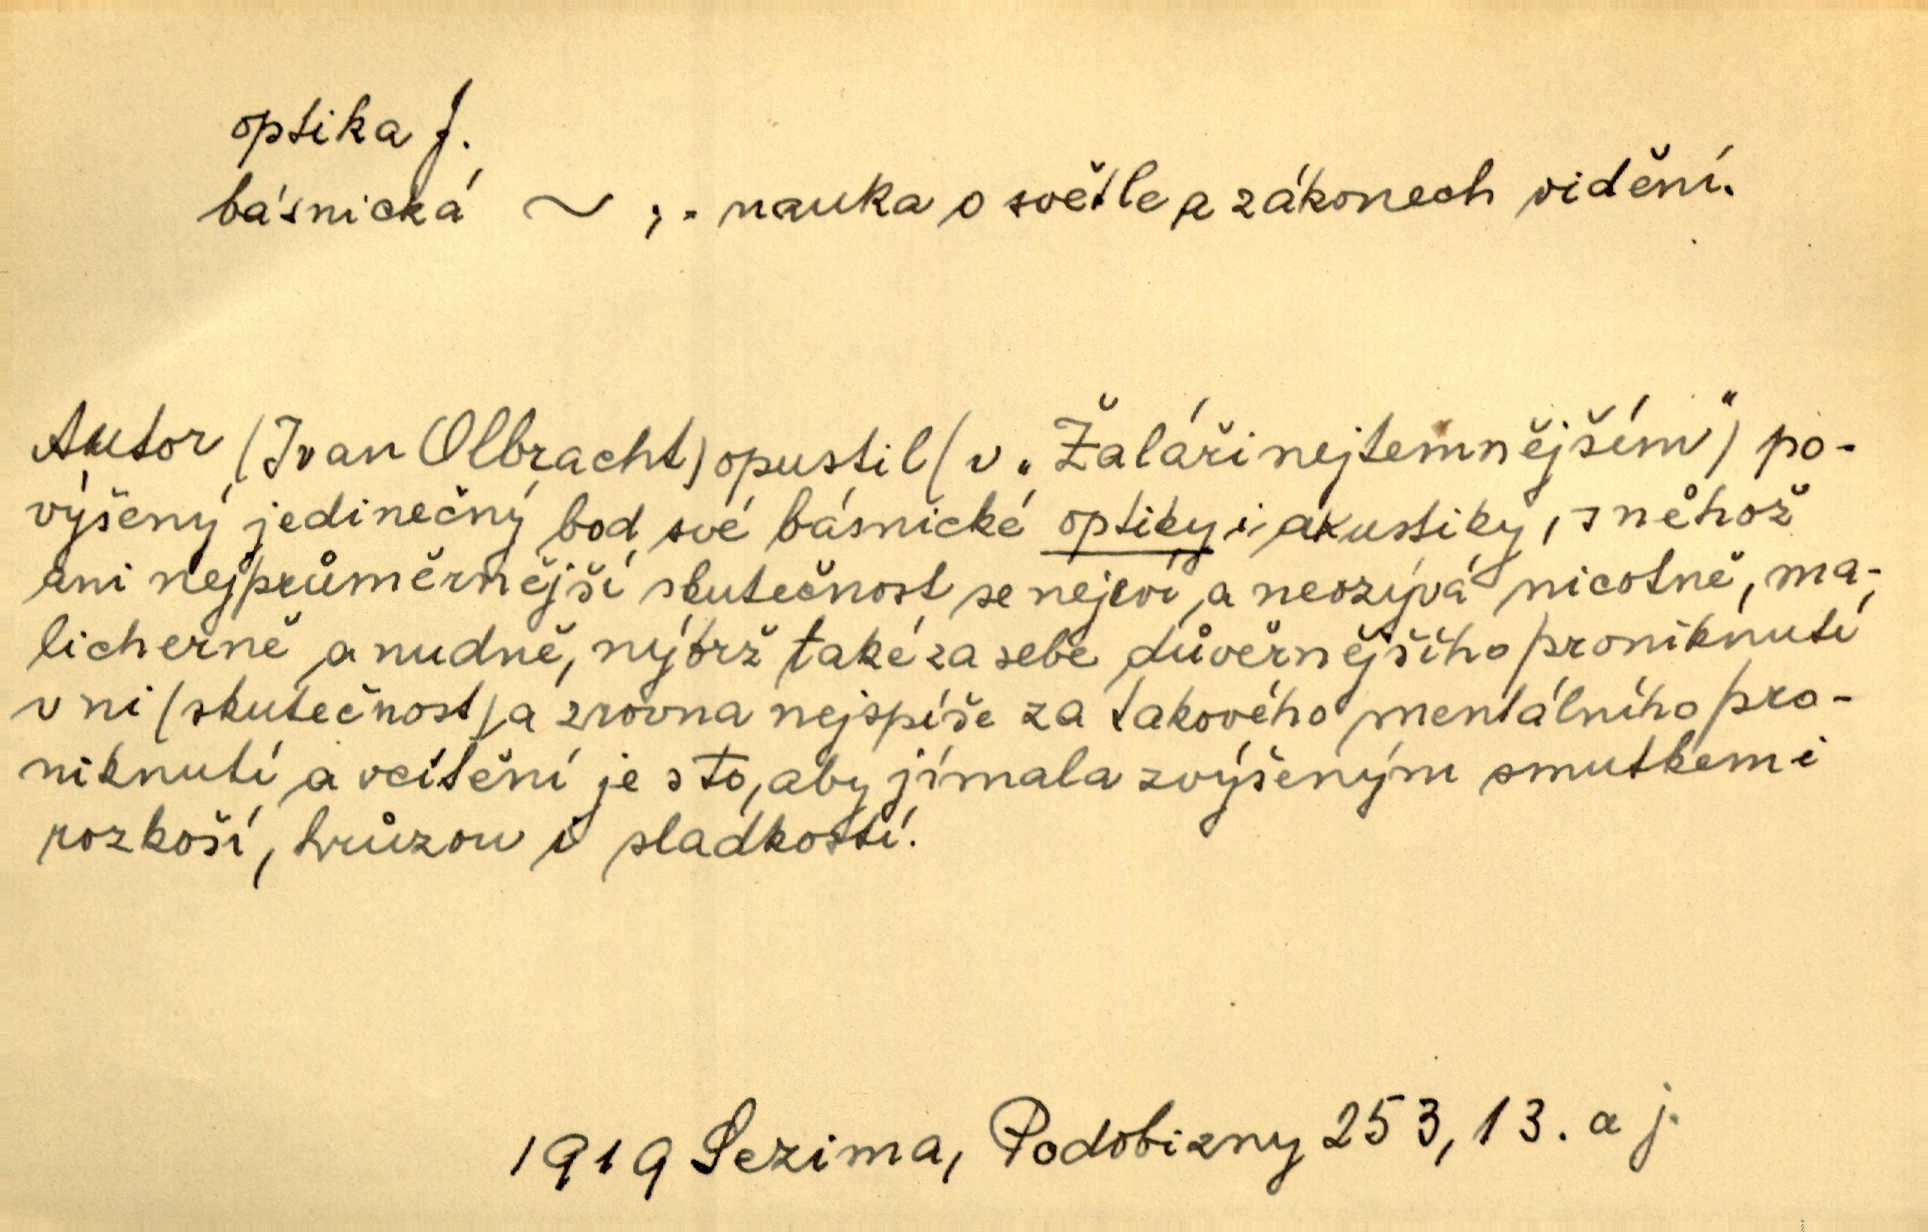 optika f.
básnická ~ ; . nauka o světle a zákonech vidění.
Autor (Ivan Olbracht) opustil (v „Žaláři nejtemnějším") po-
výšený jedinečný bod své básnické optiky i akustiky, s něhož
ani nejprůměrnější skutečnost se nejeví a neozývá nicotně, ma-
licherně a nudně, nýbrž také za sebe důvěrnějšího proniknutí
v ni (skutečnost) a zrovna nejspíše za takového mentálního pro-
niknutí a vcítění je s to, aby jímala zvýšeným smutkem i
rozkoší, hrůzou i sladkostí.
1919 Sezima, Podobizny 253, 13. a j.